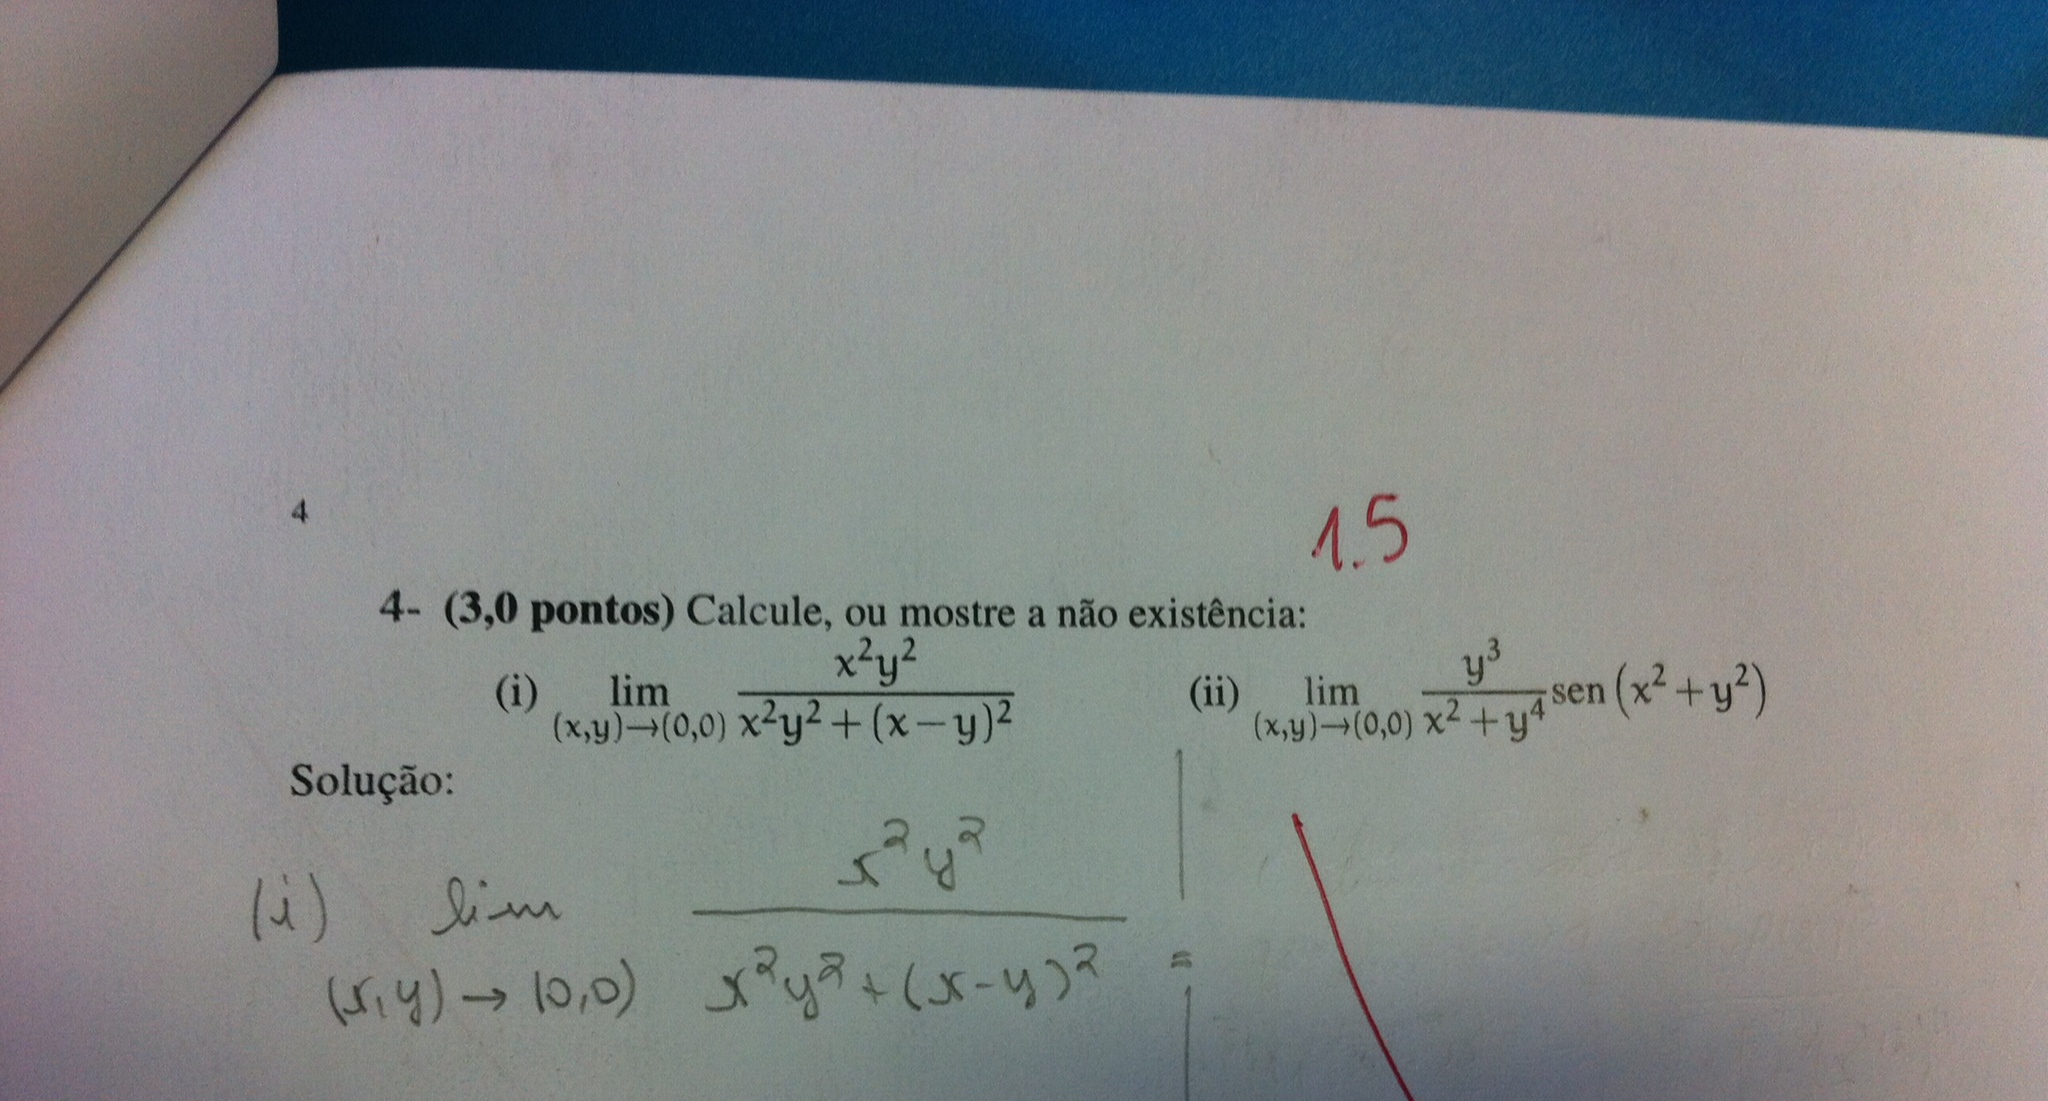 4
1.5
4- (3,0 pontos) Calcule, ou mostre a não existência:
(i) lim (x,y)→(0,0) x²y² / x²y² + (x − y)² (ii) lim (x,y)→(0,0) y³ / x² + y⁴ sen (x² + y²)
Solução:
(i) lim (x,y)→(0,0) x²y² / x²y² + (x-y)² =